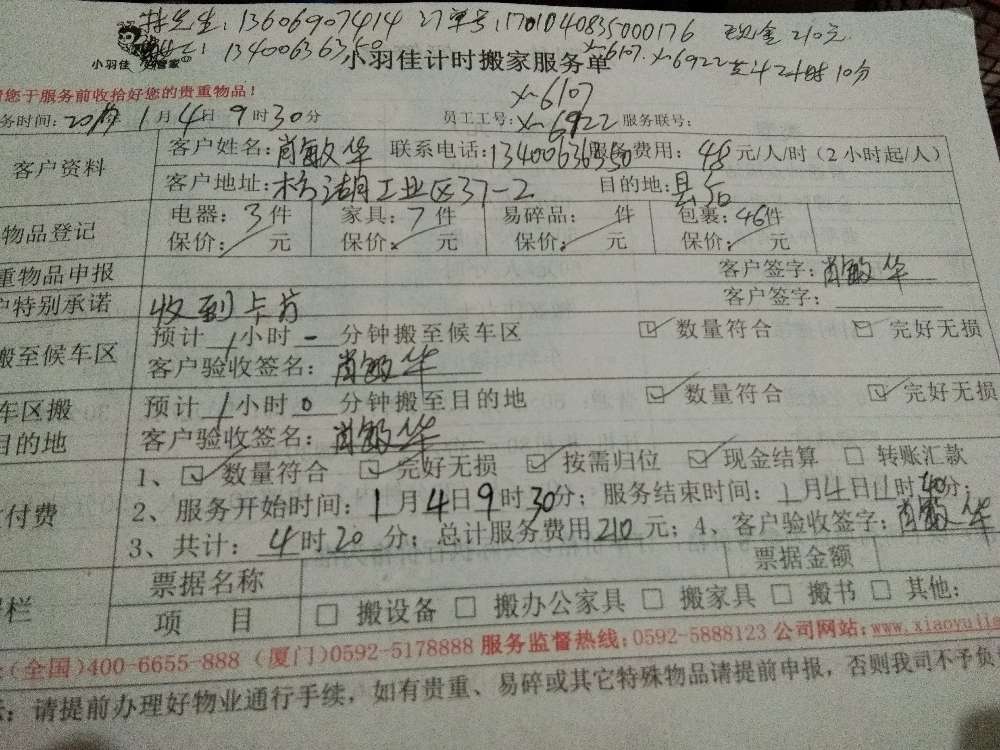 林先生: 13606907414 订单号: 1701040835000176 现金 210元
: 13400636350 xm6107. xm6922 共4小时10分
小羽佳 管家 小羽佳计时搬家服务单
xm6107
请您于服务前收拾好您的贵重物品!
务时间: 2017年 1月4日9时30分 员工工号: xm6922 服务联号:
客户资料 客户姓名: 肖敏华 联系电话: 13400636350 服务费用: 48元/人/时(2小时起/人)
客户地址: 杨湖工业区37-2 目的地: 县后
物品登记 电器: 3件 家具: 7件 易碎品: 件 包裹: 46件
保价: 元 保价: 元 保价: 元 保价: 元
重物品申报 客户签字: 肖敏华
户特别承诺 收到卡片 客户签字:
搬至候车区 预计1小时-分钟搬至候车区 ☑ 数量符合 ☑ 完好无损
客户验收签名: 肖敏华
车区搬 预计1小时0分钟搬至目的地 ☑ 数量符合 ☑ 完好无损
目的地 客户验收签名: 肖敏华
付费 1、☑ 数量符合 ☑ 完好无损 ☑ 按需归位 ☑ 现金结算 □ 转账汇款
2、服务开始时间: 1月4日9时30分; 服务结束时间: 1月4日11时40分;
3、共计: 4时20分; 总计服务费用210元; 4、客户验收签字: 肖敏华
栏 票据名称 票据金额
项 目 □ 搬设备 □ 搬办公家具 □ 搬家具 □ 搬书 □ 其他:
(全国)400-6655-888 (厦门)0592-5178888 服务监督热线: 0592-5888123 公司网站: www.xiaoyuji
: 请提前办理好物业通行手续, 如有贵重、易碎或其它特殊物品请提前申报, 否则我司不予负